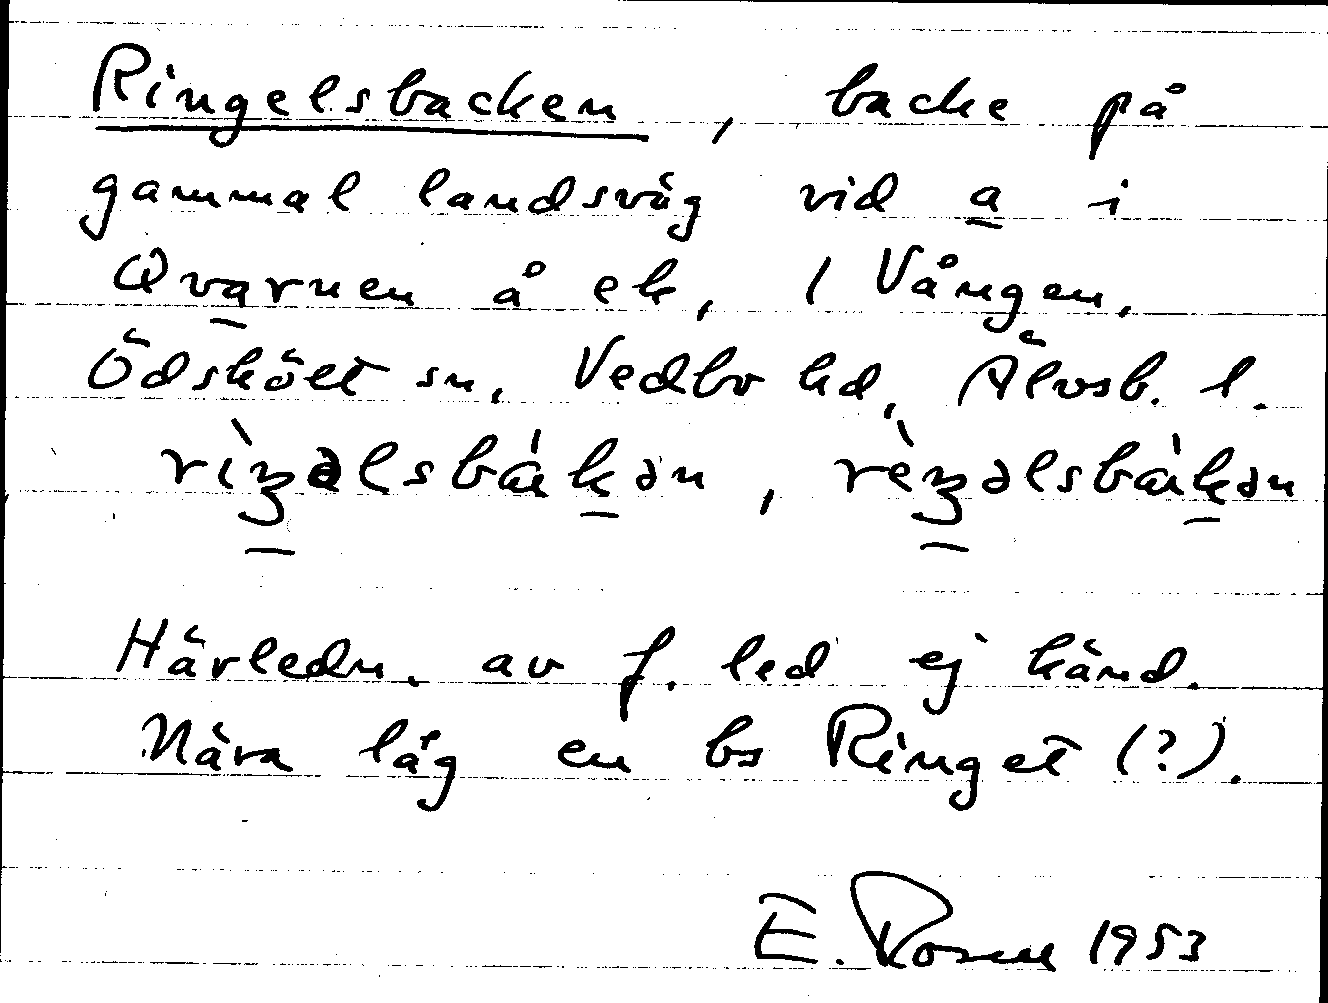 Ringelsbacken, backe på
gammal landsväg vid a i
Qvarnen å ek, / Vången,
Ödsköelt sn, Vedbo hd, Älvsb. l.
Härledn. av f. led ej känd.
Nära låg en bs Ringet (?).
E. Rosell 1953